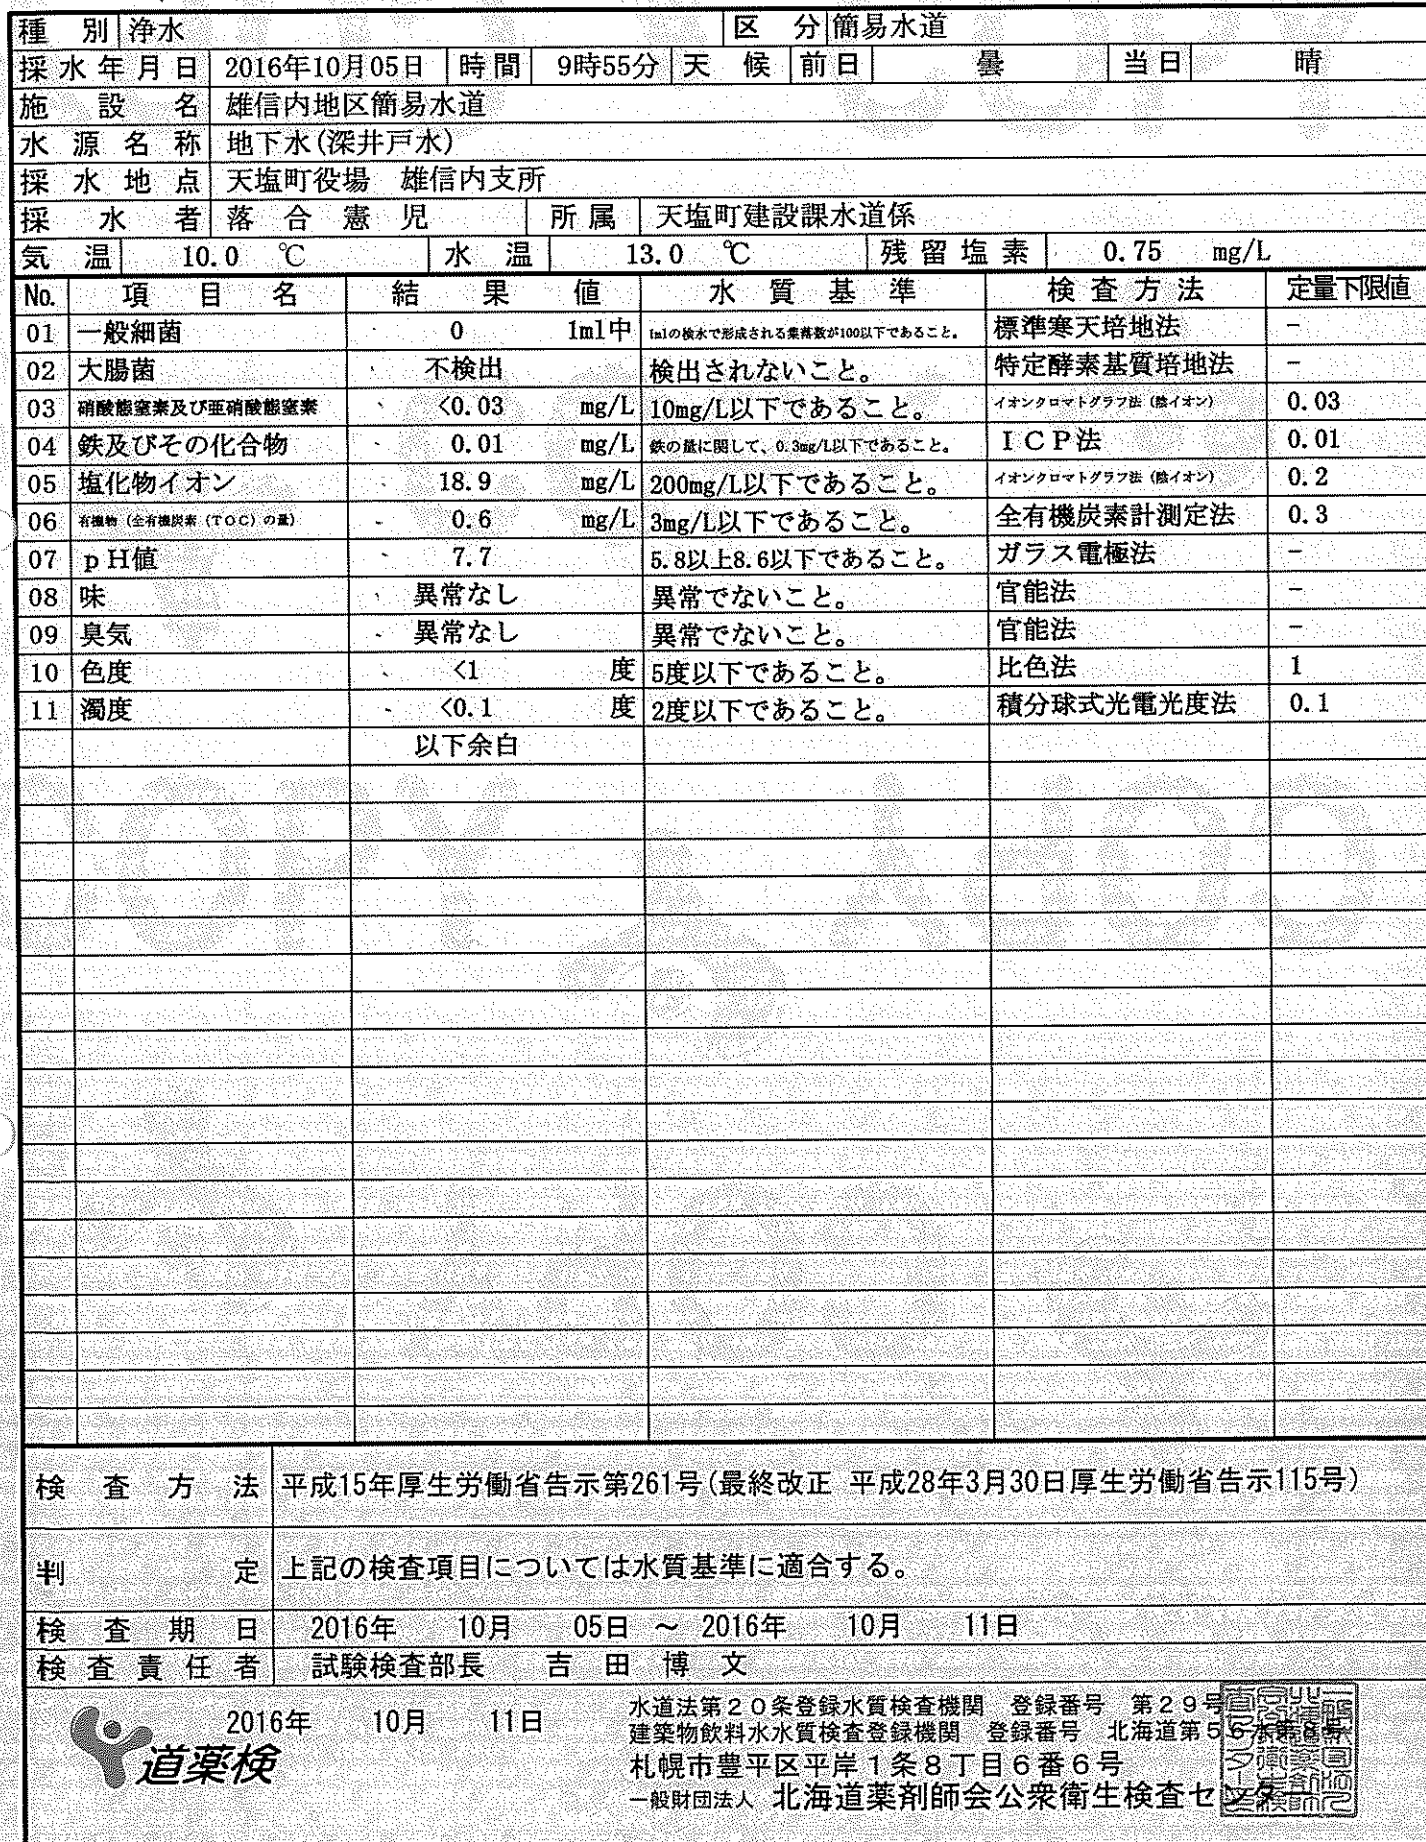 種 別 浄水 区 分 簡易水道
採水年月日 2016年10月05日 時間 9時55分 天 候 前日 曇 当日 晴
施 設 名 雄信内地区簡易水道
水 源 名 称 地下水(深井戸水)
採 水 地 点 天塩町役場 雄信内支所
採 水 者 落 合 憲 児 所属 天塩町建設課水道係
気 温 10.0 ℃ 水 温 13.0 ℃ 残留塩素 0.75 mg/L
No. 項 目 名 結 果 値 水 質 基 準 検査方法 定量下限値
01 一般細菌 0 1ml中 1mlの検水で形成される集落数が100以下であること。 標準寒天培地法 -
02 大腸菌 不検出 検出されないこと。 特定酵素基質培地法 -
03 硝酸態窒素及び亜硝酸態窒素 <0.03 mg/L 10mg/L以下であること。 イオンクロマトグラフ法（陰イオン） 0.03
04 鉄及びその化合物 0.01 mg/L 鉄の量に関して、0.3mg/L以下であること。 ＩＣＰ法 0.01
05 塩化物イオン 18.9 mg/L 200mg/L以下であること。 イオンクロマトグラフ法（陰イオン） 0.2
06 有機物（全有機炭素（ＴＯＣ）の量） 0.6 mg/L 3mg/L以下であること。 全有機炭素計測定法 0.3
07 ｐＨ値 7.7 5.8以上8.6以下であること。 ガラス電極法 -
08 味 異常なし 異常でないこと。 官能法 -
09 臭気 異常なし 異常でないこと。 官能法 -
10 色度 <1 度 5度以下であること。 比色法 1
11 濁度 <0.1 度 2度以下であること。 積分球式光電光度法 0.1
以下余白
検 査 方 法 平成15年厚生労働省告示第261号(最終改正 平成28年3月30日厚生労働省告示115号)
判 定 上記の検査項目については水質基準に適合する。
検 査 期 日 2016年 10月 05日 ～ 2016年 10月 11日
検 査 責 任 者 試験検査部長 吉 田 博 文
道薬検 2016年 10月 11日
水道法第２０条登録水質検査機関 登録番号 第２９号
建築物飲料水水質検査登録機関 登録番号 北海道第５６水第８号
札幌市豊平区平岸１条８丁目６番６号
一般財団法人 北海道薬剤師会公衆衛生検査センター